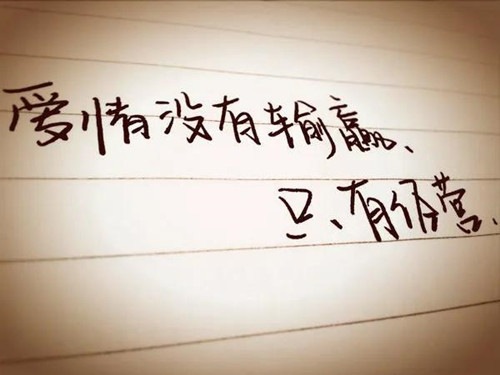 爱情没有输赢、
只、有经营、